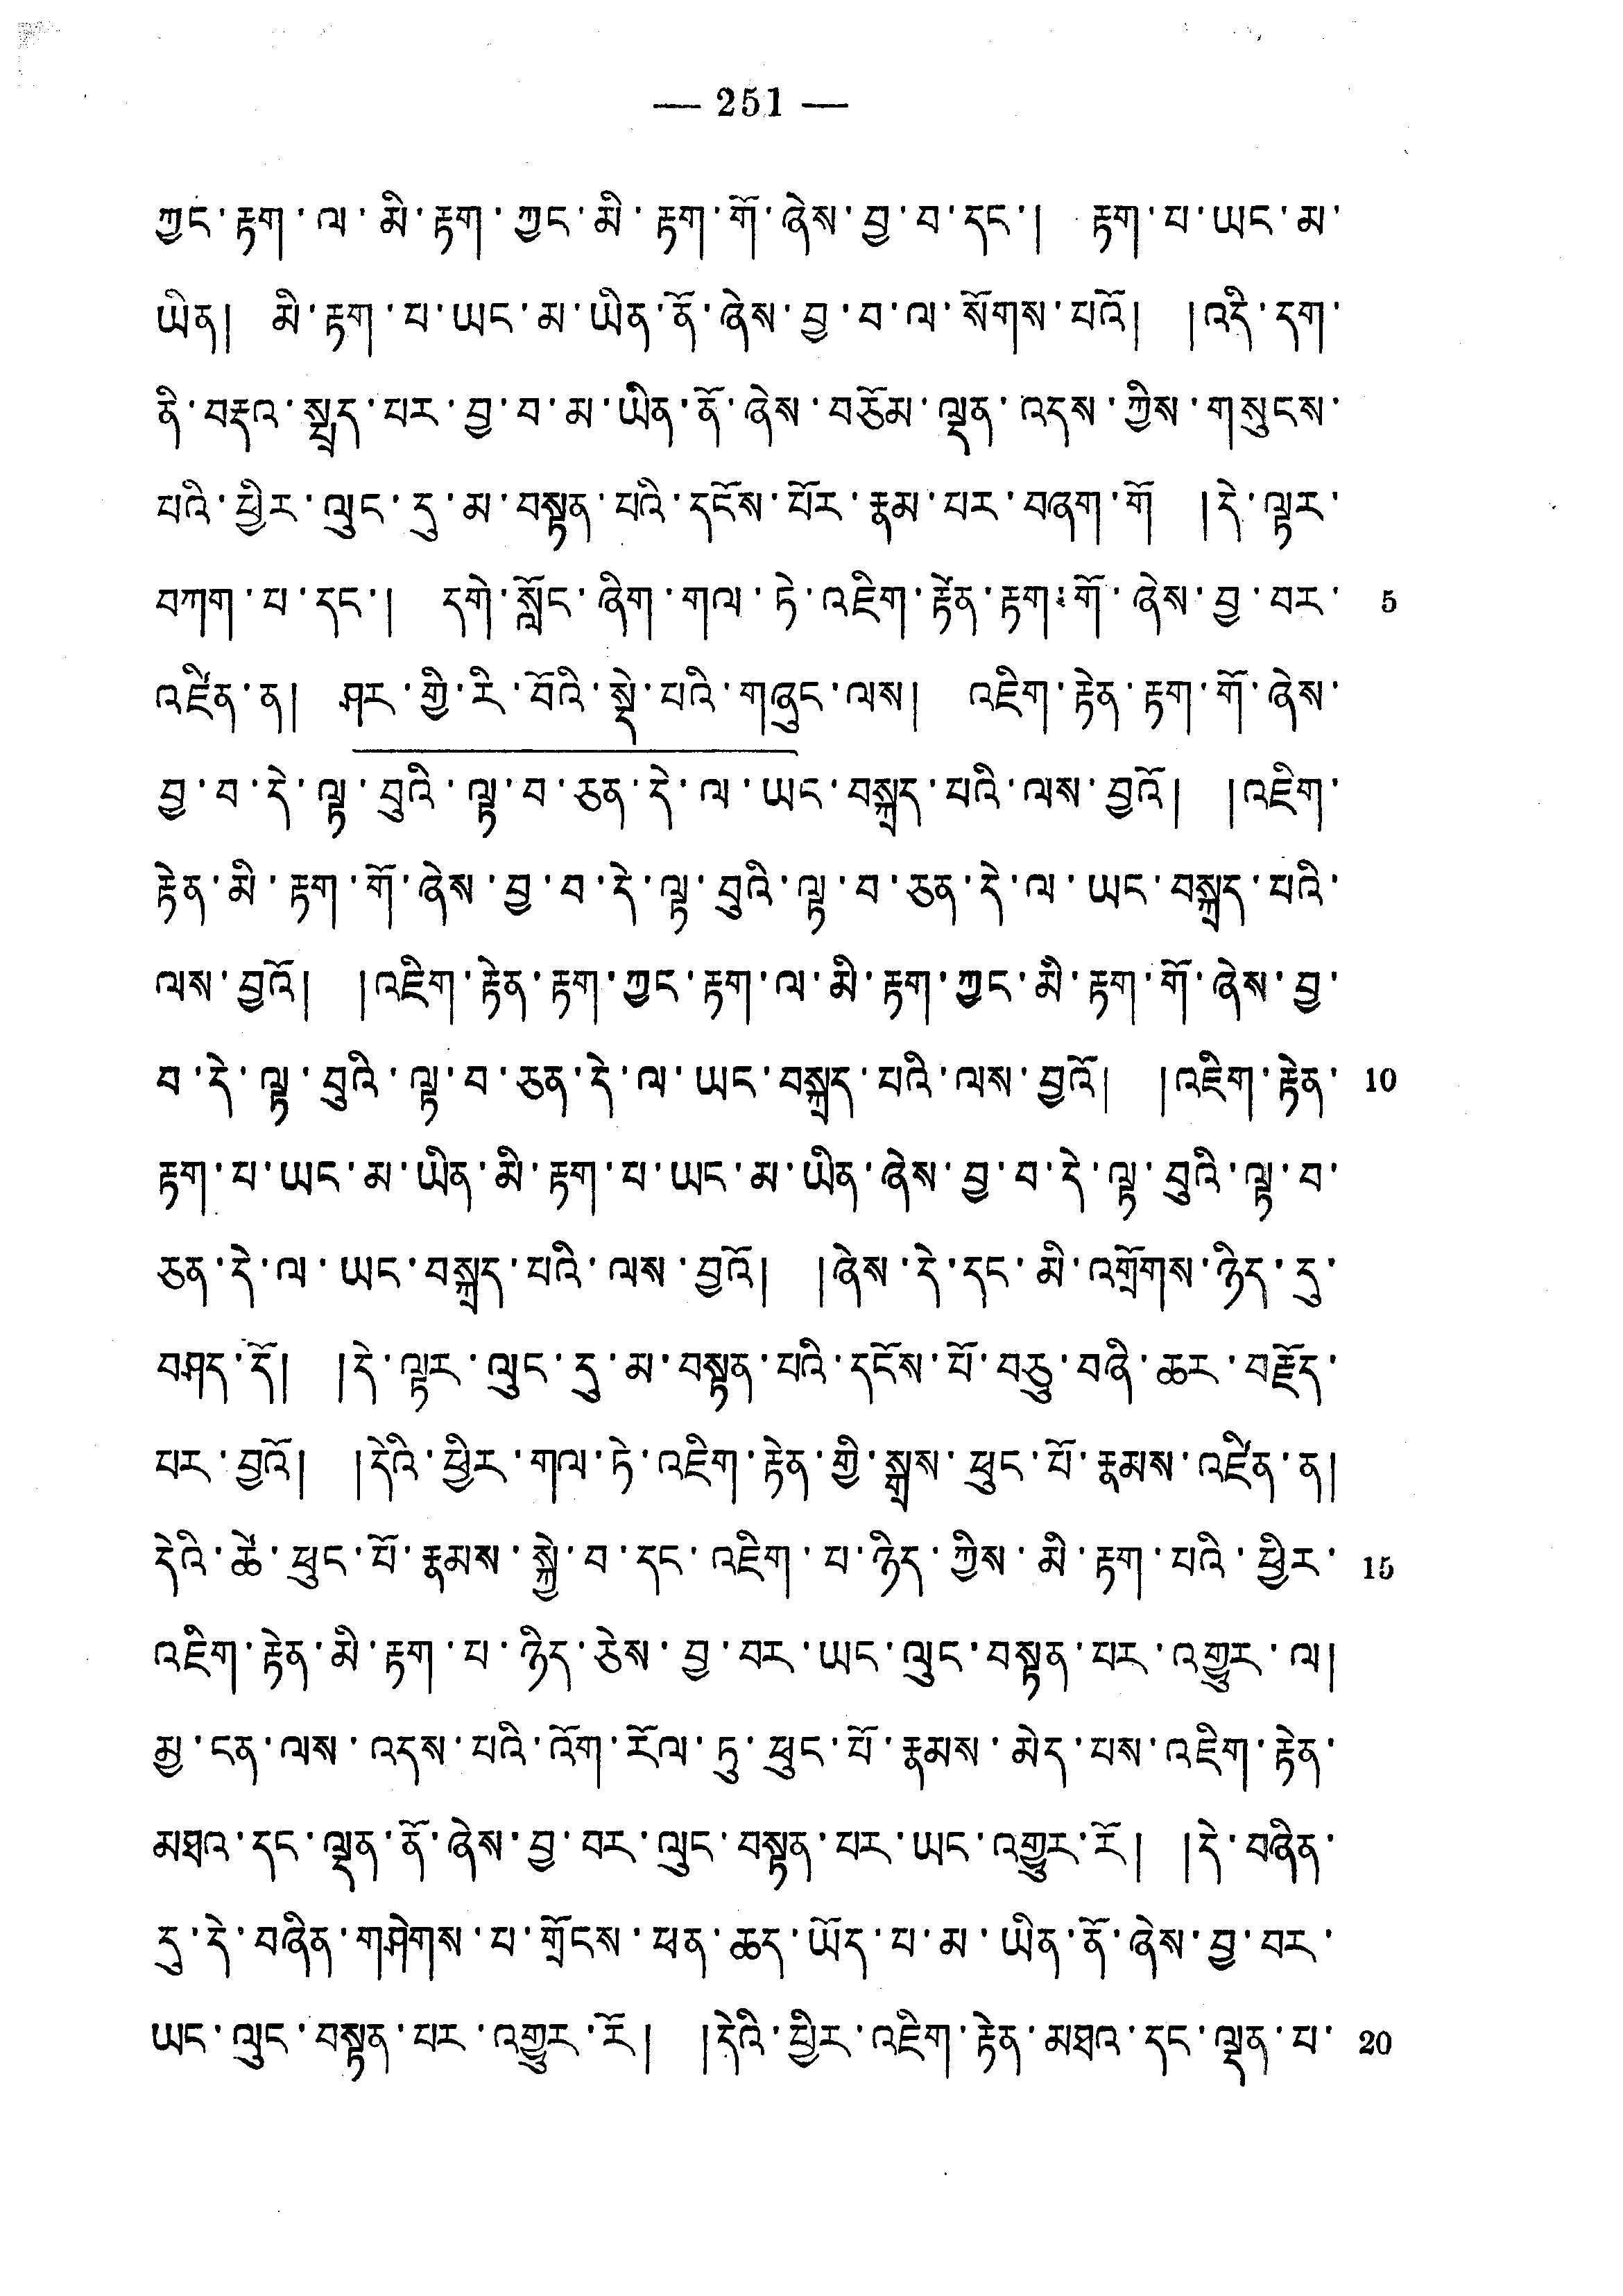 — 251 —
ཀྱང་རྟག་ལ་མི་རྟག་ཀྱང་མི་རྟག་གོ་ཞེས་བྱ་བ་དང་། རྟག་པ་ཡང་མ་
ཡིན། མི་རྟག་པ་ཡང་མ་ཡིན་ནོ་ཞེས་བྱ་བ་ལ་སོགས་པའོ། །འདི་དག་
ནི་བརྡའ་སྤྲད་པར་བྱ་བ་མ་ཡིན་ནོ་ཞེས་བཅོམ་ལྡན་འདས་ཀྱིས་གསུངས་
པའི་ཕྱིར་ལུང་དུ་མ་བསྟན་པའི་དངོས་པོར་རྣམ་པར་བཞག་གོ །དེ་ལྟར་
བཀག་པ་དང་། དགེ་སློང་ཞིག་གལ་ཏེ་འཇིག་རྟེན་རྟག་གོ་ཞེས་བྱ་བར་ 5
འཛིན་ན། ཤར་གྱི་རི་བོའི་སྡེ་པའི་གཞུང་ལས། འཇིག་རྟེན་རྟག་གོ་ཞེས་
བྱ་བ་དེ་ལྟ་བུའི་ལྟ་བ་ཅན་དེ་ལ་ཡང་བསྐྲད་པའི་ལས་བྱའོ། །འཇིག་
རྟེན་མི་རྟག་གོ་ཞེས་བྱ་བ་དེ་ལྟ་བུའི་ལྟ་བ་ཅན་དེ་ལ་ཡང་བསྐྲད་པའི་
ལས་བྱའོ། །འཇིག་རྟེན་རྟག་ཀྱང་རྟག་ལ་མི་རྟག་ཀྱང་མི་རྟག་གོ་ཞེས་བྱ་
བ་དེ་ལྟ་བུའི་ལྟ་བ་ཅན་དེ་ལ་ཡང་བསྐྲད་པའི་ལས་བྱའོ། །འཇིག་རྟེན་ 10
རྟག་པ་ཡང་མ་ཡིན་མི་རྟག་པ་ཡང་མ་ཡིན་ཞེས་བྱ་བ་དེ་ལྟ་བུའི་ལྟ་བ་
ཅན་དེ་ལ་ཡང་བསྐྲད་པའི་ལས་བྱའོ། །ཞེས་དེ་དང་མི་འགྲོགས་ཉིད་དུ་
བཤད་དོ། །དེ་ལྟར་ལུང་དུ་མ་བསྟན་པའི་དངོས་པོ་བཅུ་བཞི་ཆར་བརྗོད་
པར་བྱའོ། །དེའི་ཕྱིར་གལ་ཏེ་འཇིག་རྟེན་གྱི་སྒྲས་ཕུང་པོ་རྣམས་འཛིན་ན།
དེའི་ཚེ་ཕུང་པོ་རྣམས་སྐྱེ་བ་དང་འཇིག་པ་ཉིད་ཀྱིས་མི་རྟག་པའི་ཕྱིར་ 15
འཇིག་རྟེན་མི་རྟག་པ་ཉིད་ཅེས་བྱ་བར་ཡང་ལུང་བསྟན་པར་འགྱུར་ལ།
མྱ་ངན་ལས་འདས་པའི་འོག་རོལ་ཏུ་ཕུང་པོ་རྣམས་མེད་པས་འཇིག་རྟེན་
མཐའ་དང་ལྡན་ནོ་ཞེས་བྱ་བར་ལུང་བསྟན་པར་ཡང་འགྱུར་རོ། །དེ་བཞིན་
དུ་དེ་བཞིན་གཤེགས་པ་གྲོངས་ཕན་ཆད་ཡོད་པ་མ་ཡིན་ནོ་ཞེས་བྱ་བར་
ཡང་ལུང་བསྟན་པར་འགྱུར་རོ། །དེའི་ཕྱིར་འཇིག་རྟེན་མཐའ་དང་ལྡན་པ་ 20